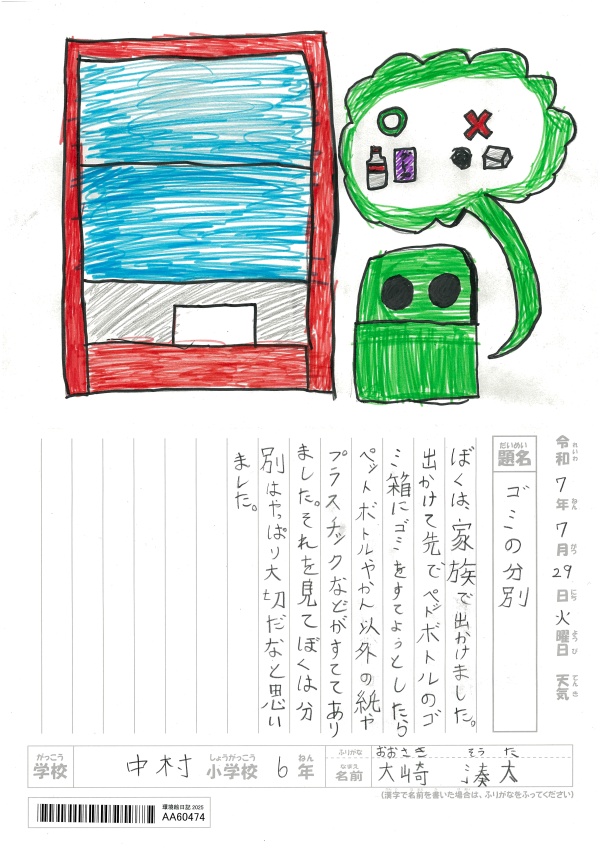 令和7年7月29日火曜日 天気
れいわ ねん がつ にち ようび てんき
だいめい
題名 ゴミの分別
ぼくは、家族で出かけました。
出かけて先でペットボトルのゴ
ミ箱にゴミをすてようとしたら
ペットボトルやかん以外の紙や
プラスチックなどがすててあり
ました。それを見てぼくは分
別はやっぱり大切だなと思い
ました。
がっこう しょうがっこう ねん
学校 中村 小学校 6年
ふりがな おおさき そうた
なまえ
名前 大崎 湊太
(漢字で名前を書いた場合は、ふりがなをふってください)
環境絵日記 2025
AA60474